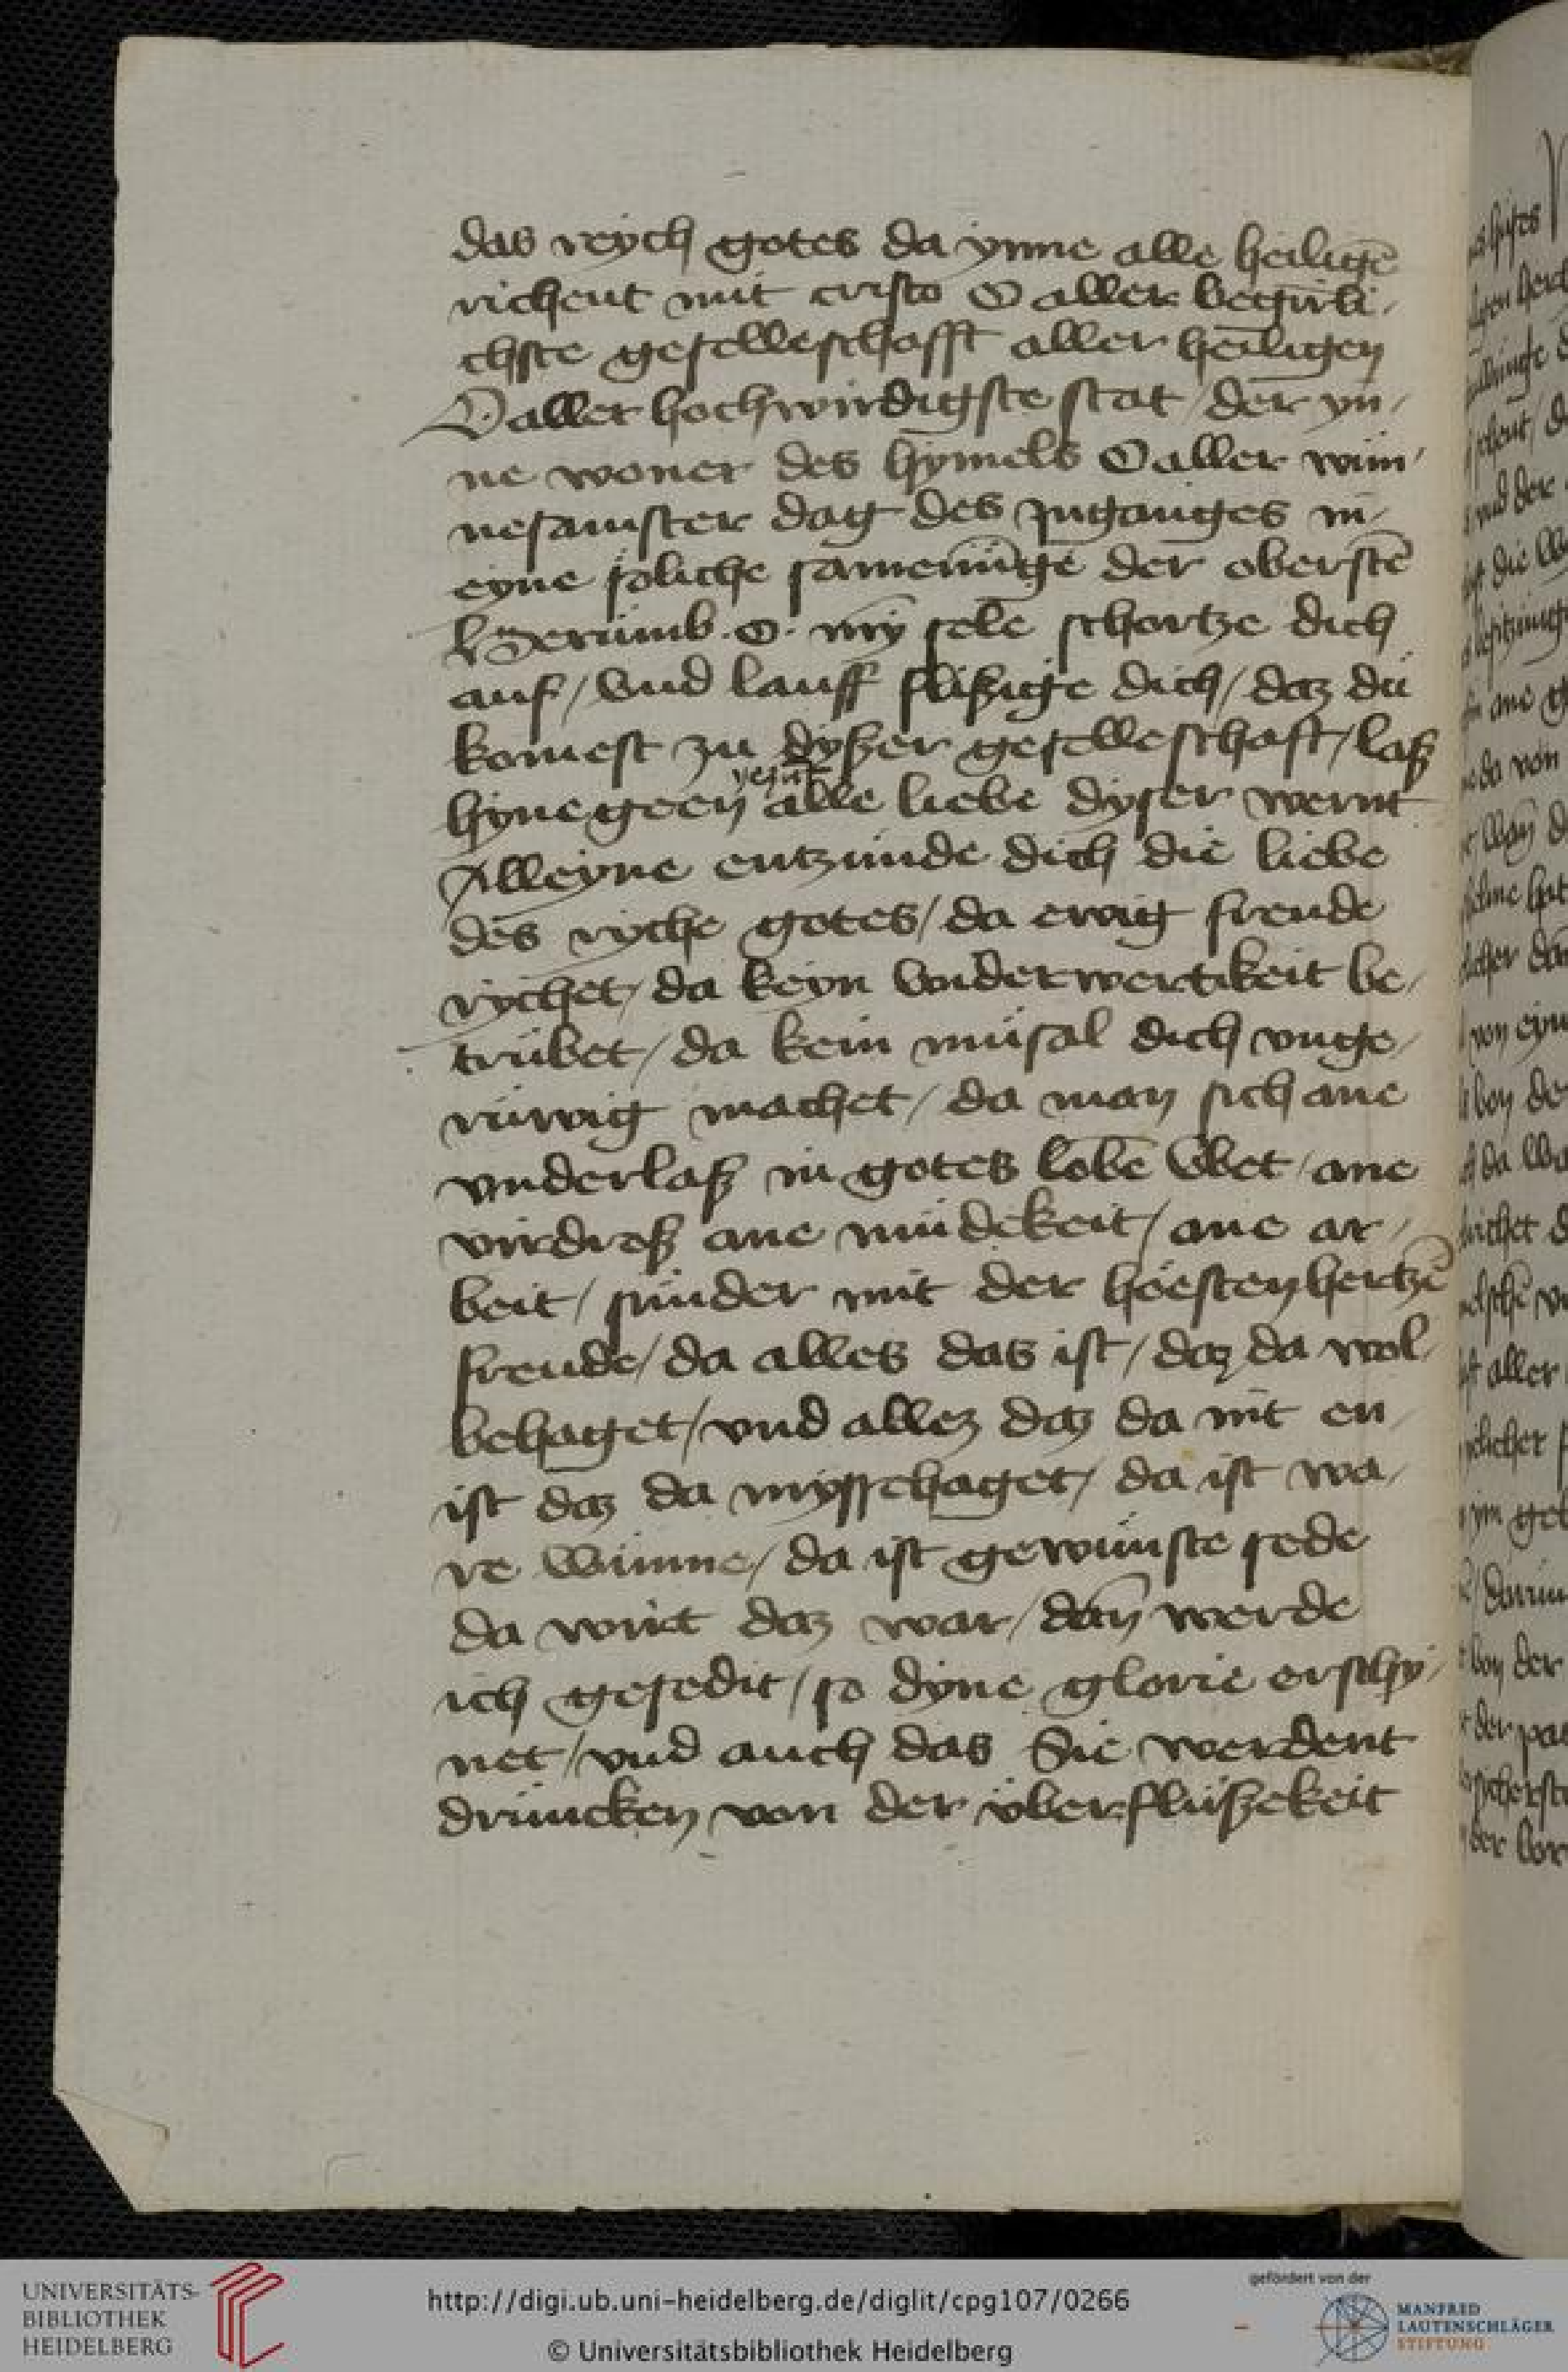 das reych gotes da ynne alle heiligē
richent mit cristo O aller begirli-
chste geselleschafft aller heiligen
O aller hochwirdigste stat / der yn-
ne woner des hymels O aller wun-
nesamster dag des inganges in
eyne soliche samenūge der oberstē
O mȳ sele schortze dich
auf / vnd lauff flißige dich / daz du
komest zu dyßer geselleschaft / laß
yeȥūt
hyne geen alle liebe dyser wernt
Alleyne entzunde dich die liebe
des ryche gotes / da ewig freude
rychet / da keyn vnderwertikeit be-
trubet / da kein müsal dich vnge-
rüwig machet / da man sich ane
vnderlaß in gotes lobē vbet / ane
virdroß ane müdekeit / ane ar-
beit / sunder mit der höesten hertzē
freude / da alles das ist / daz da wol
behaget / vnd allez daz da nit en-
ist daz da mysschaget / da ist wa-
re wunne / da ist gewünste sede
da wirt daz war / dan̄ werde
ich gesedit / so dyne glorie erschy-
net / vnd auch das Sie werdent
druncken von der überflüßekeit
UNIVERSITÄTS-
BIBLIOTHEK
HEIDELBERG
http://digi.ub.uni-heidelberg.de/diglit/cpg107/0266
© Universitätsbibliothek Heidelberg
gefördert von der
MANFRED
LAUTENSCHLÄGER
STIFTUNG